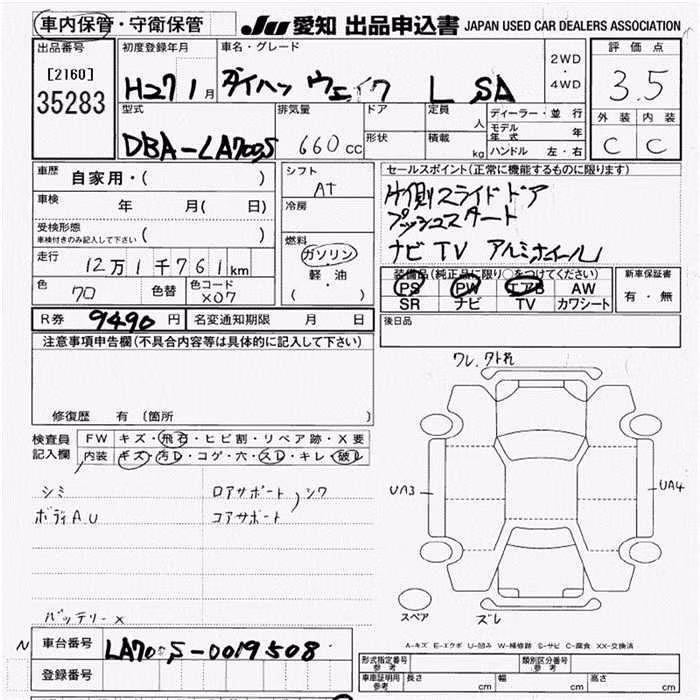 車内保管・守衛保管
JU 愛知 出品申込書 JAPAN USED CAR DEALERS ASSOCIATION
出品番号 初度登録年月 車名・グレード 2WD・4WD 評価点
[2160] 35283
H27 1月 ダイハツ ウェイク L SA
3.5
型式 排気量 ドア 定員 人 ディーラー・並行 外装 内装
DBA-LA700S 660cc 形状 積載 kg モデル年式 年 C C
ハンドル 左・右
車歴 自家用・( )
シフト AT
セールスポイント(正常に機能するものに限ります)
車検 年 月( 日)
冷房
片側スライドドア
プッシュスタート
受検形態 ( )
車検付きのみ記入して下さい
燃料 ガソリン
軽・油
( )
ナビ TV アルミホイール
走行 12万1千761km
装備品(純正品に限り○をつけてください) 新車保証書
PS PW エアB AW 有・無
色 70 色替 色コード X07
SR ナビ TV カワシート
R券 9490円 名変通知期限 月 日
後日品
注意事項申告欄(不具合内容等は具体的に記入して下さい)
ワレ,クト れ
修復歴 有 〔箇所 〕
検査員記入欄 FW キズ・飛石・ヒビ割・リペア跡・X要
内装 キズ・汚レ・コゲ・穴・スレ・キレ・破レ
シミ ロアサポート,シワ
UA3 UA4
ボディA.U コアサポート
バッテリーX
スペア ズレ
N 車台番号 LA700S-0019508
A-キズ E-エクボ U-凹み W-補修跡 S-サビ C-腐食 XX-交換済
登録番号
形式指定番号 参考 類別区分番号 参考
車庫証明用 参考 長さ cm 幅 cm 高さ cm